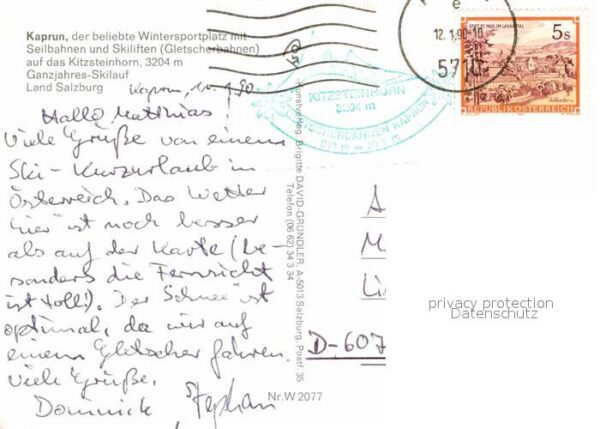 Kaprun, der beliebte Wintersportplatz mit
Seilbahnen und Skiliften (Gletscherbahnen)
auf das Kitzsteinhorn, 3204 m
Ganzjahres-Skilauf
Land Salzburg
Kaprun, 10.1.90
Hallo Matthias!
Viele Grüße von einem
Ski-Kurzurlaub in
Österreich. Das Wetter
hier ist noch besser
als auf der Karte (be-
sonders die Fernsicht
ist toll!). Der Schnee ist
optimal, da wir auf
einem Gletscher fahren.
Viele Grüße,
Dominick, Stephan
Nr.W 2077
Kunstverlag, Brigitte DAVID-GRÜNDLER, A-5013 Salzburg, Postf. 35
Telefon (06 62) 34 3 34
KITZSTEINHORN
3204 m
GLETSCHERBAHNEN KAPRUN
e
12.1.90-10
5710
5s
REPUBLIK ÖSTERREICH
A
M
Li
D-607
privacy protection
Datenschutz